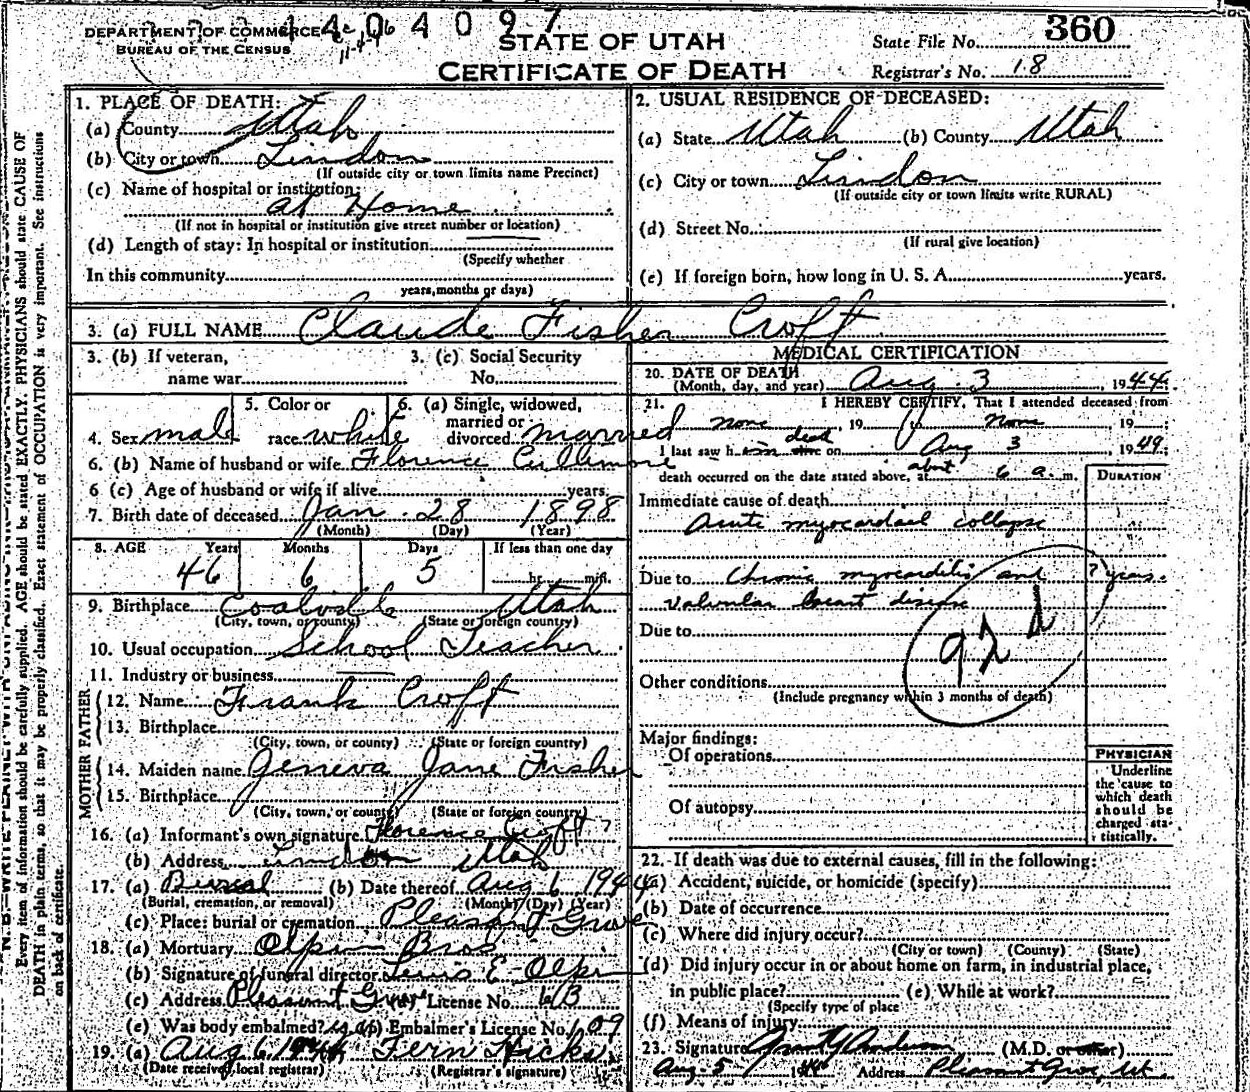 DEPARTMENT OF COMMERCE
BUREAU OF THE CENSUS
1404097
STATE OF UTAH
CERTIFICATE OF DEATH
State File No. 360
Registrar's No. 18
1. PLACE OF DEATH:
(a) County Utah
(b) City or town Lindon
(If outside city or town limits name Precinct)
(c) Name of hospital or institution:
at Home
(If not in hospital or institution give street number or location)
(d) Length of stay: In hospital or institution
(Specify whether
In this community
years, months or days)
2. USUAL RESIDENCE OF DECEASED:
(a) State Utah (b) County Utah
(c) City or town Lindon
(If outside city or town limits write RURAL)
(d) Street No.
(If rural give location)
(e) If foreign born, how long in U. S. A. years.
3. (a) FULL NAME Claude Fisher Croft
3. (b) If veteran,
name war
3. (c) Social Security
No.
4. Sex male
5. Color or
race white
6. (a) Single, widowed,
married or
divorced married
6. (b) Name of husband or wife Florence Cullimore
6 (c) Age of husband or wife if alive years
7. Birth date of deceased Jan 28 1898
(Month) (Day) (Year)
8. AGE Years Months Days If less than one day
46 6 5 hr. min.
9. Birthplace Coalville Utah
(City, town, or county) (State or foreign country)
10. Usual occupation School Teacher
11. Industry or business
FATHER
12. Name Frank Croft
13. Birthplace
(City, town, or county) (State or foreign country)
MOTHER
14. Maiden name Geneva Jane Fisher
15. Birthplace
(City, town, or county) (State or foreign country)
16. (a) Informant's own signature Florence Croft
(b) Address Lindon Utah
17. (a) Burial (b) Date thereof Aug 6 1944
(Burial, cremation, or removal) (Month) (Day) (Year)
(c) Place: burial or cremation Pleasant Grove
18. (a) Mortuary Olpin Bros
(b) Signature of funeral director Lewis E Olpin
(c) Address Pleasant Grove License No.
(e) Was body embalmed? Embalmer's License No. 109
19. (a) Aug 6 1944 Fern Hicks
(Date received local registrar) (Registrar's signature)
MEDICAL CERTIFICATION
20. DATE OF DEATH
(Month, day, and year) Aug. 3, 1944
21. I HEREBY CERTIFY, That I attended deceased from
none, 19 none 19
I last saw h im dead on Aug 3 1944
death occurred on the date stated above, at about 6 a. m.
DURATION
Immediate cause of death
acute myocardial collapse
Due to chronic myocarditis and ? years.
valvular heart disease
Due to
92 d
Other conditions
(Include pregnancy within 3 months of death)
Major findings:
Of operations
Of autopsy
PHYSICIAN
Underline
the cause to
which death
should be
charged sta-
tistically.
22. If death was due to external causes, fill in the following:
(a) Accident, suicide, or homicide (specify)
(b) Date of occurrence
(c) Where did injury occur?
(City or town) (County) (State)
(d) Did injury occur in or about home on farm, in industrial place,
in public place? (e) While at work?
(Specify type of place
(f) Means of injury
23. Signature (M.D. or other)
Aug. 5 Address Pleasant Grove, Ut.
Every item of information should be carefully supplied. AGE should be stated EXACTLY. PHYSICIANS should state CAUSE OF
DEATH in plain terms, so that it may be properly classified. Exact statement of OCCUPATION is very important. See instructions
on back of certificate.